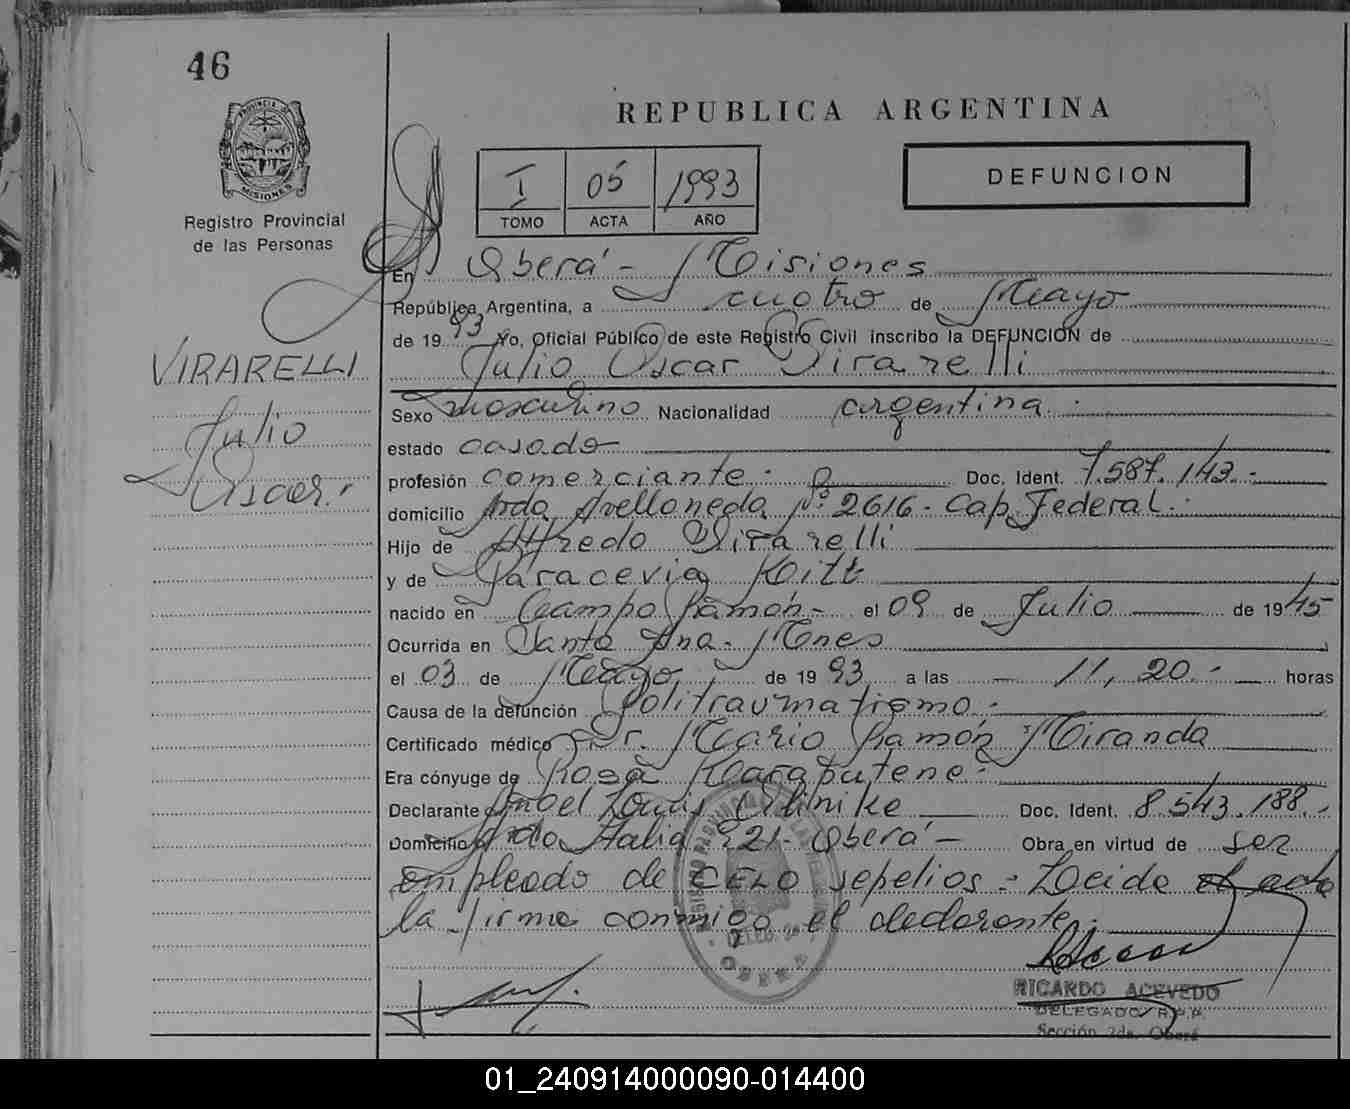 46
PROVINCIA DE
MISIONES
Registro Provincial
de las Personas
VIRARELLI
Julio
Oscar.
REPUBLICA ARGENTINA
I 05 1993
TOMO ACTA AÑO
DEFUNCION
En Oberá - Misiones
República Argentina, a cuatro de Mayo
de 19 93 Yo, Oficial Público de este Registro Civil inscribo la DEFUNCIÓN de
Julio Oscar Virarelli
Sexo masculino Nacionalidad argentina.
estado casado
profesión comerciante. Doc. Ident. 7.587.143.-
domicilio Avda Avellaneda Nº 2616. Cap. Federal.
Hijo de Alfredo Virarelli
y de Paracevia
nacido en Campo Ramón - el 09 de Julio de 19 45
Ocurrida en Santa Ana. Mnes
el 03 de Mayo de 19 93 a las 11,20.- horas
Causa de la defunción Politraumatismo.-
Certificado médico Dr. Mario Ramón Miranda
Era cónyuge de Rosa
Declarante Angel Louis Doc. Ident. 8.543.188.-
Domicilio Avda Italia 221- Oberá - Obra en virtud de ser
empleado de CELO sepelios.- Leida el acta
la firma conmigo el declarante.-
OBERA
RICARDO ACEVEDO
DELEGADO R.P.P.
Sección 2da. Oberá
01_240914000090-014400